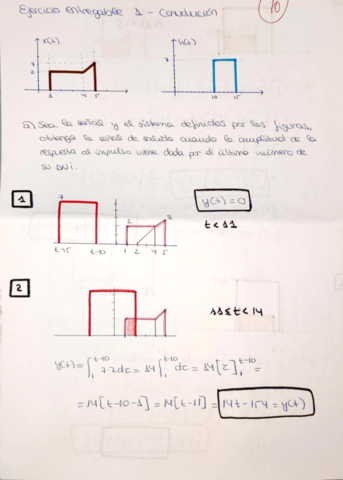 Ejercicio entregable 1 - Convolución
10
x(t)
h(t)
7
2
1 4 5
10 15
a) Sea la señal y el sistema definidos por las figuras,
obtenga la señal de salida cuando la amplitud de la
respuesta al impulso viene dada por el último número de
su DNI.
1
7
2
3
t-15 t-10
1 2 4 5
y(t)=0
t<11
2
11≤t<14
y(t)=∫₁^t-10 7·2dτ=14∫₁^t-10 dτ=14[τ]₁^t-10=
=14[t-10-1]=14[t-11]=14t-154=y(t)